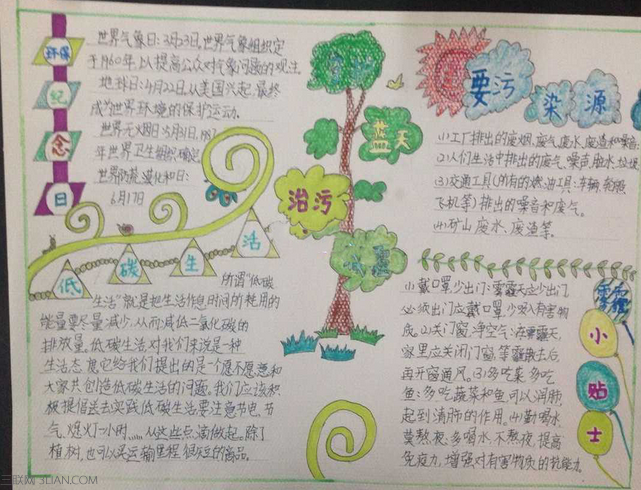 环保
纪
念
日
世界气象日:3月23日,世界气象组织定
于1960年,以提高公众对气象问题的
地球日:4月22日,从美国兴起,最终
成为世界环境的保护运动。
世界无烟日:5月31日,1987
年世界卫生组织确定
世界防荒漠化和日:
6月17日
低
碳
生
活
所谓“低碳
生活”就是把生活作息时间所耗用的
能量要尽量减少,从而减低二氧化碳的
排放量。低碳生活对我们来说是一种
生活态度,它给我们提出的是个愿不愿意和
大家共创造低碳生活的问题。我们应该积
极提倡去实践低碳生活要注意节电、节
气、熄灯一小时……从这些点滴做起。除了
植树,也可以买运输里程很短的商品。
蓝天
治污
减霾
要污
染
源
(1)工厂排出的废烟、废气、废水、废渣和噪音
(2)人们生活中排出的废气、噪音、脏水、垃圾
(3)交通工具(所有的燃油工具:车辆、轮船
飞机等)排出的噪音和废气。
(4)矿山废水、废渣等。
小
贴
士
(1)戴口罩,少出门:雾霾天应少出门
必须出门应戴口罩,少吸入有害物
质。(2)关门窗,净空气:在雾霾天,
家里应关闭门窗,等霾散去后,
再开窗通风。(3)多吃菜,多吃
鱼:多吃蔬菜和鱼可以润肺,
起到清肺的作用。(4)勤喝水,
莫熬夜:多喝水,不熬夜,提高
免疫力,增强对有害物质的抵抗力。
三联网 3LIAN.COM